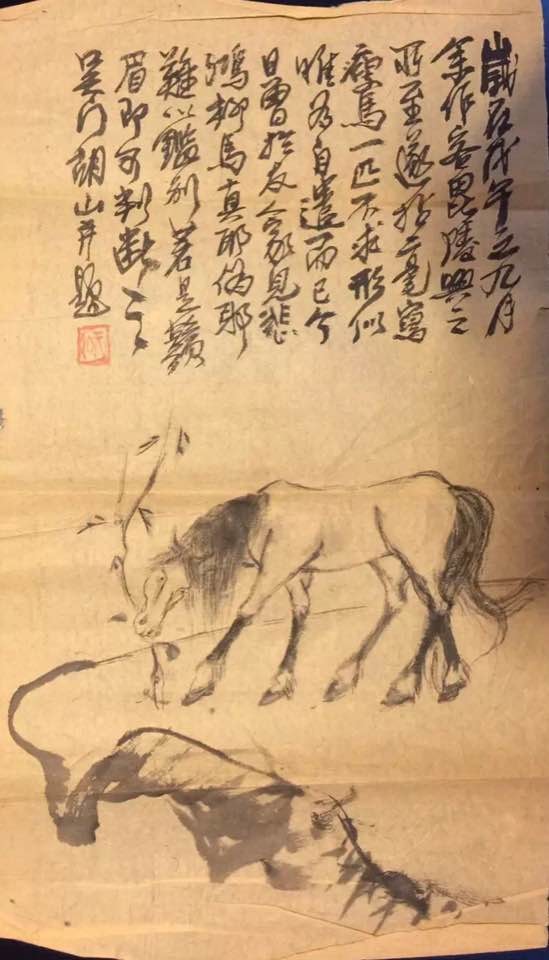 歲在戊午之九月
余作客毘陵興之
所至遂拈二毫寫
瘦馬一匹不求形似
唯為自遣而已今
日曾於友人家見悲
鴻柳馬真耶偽耶
難以鑑別若是鬚
眉即可判斷
吳门胡山題